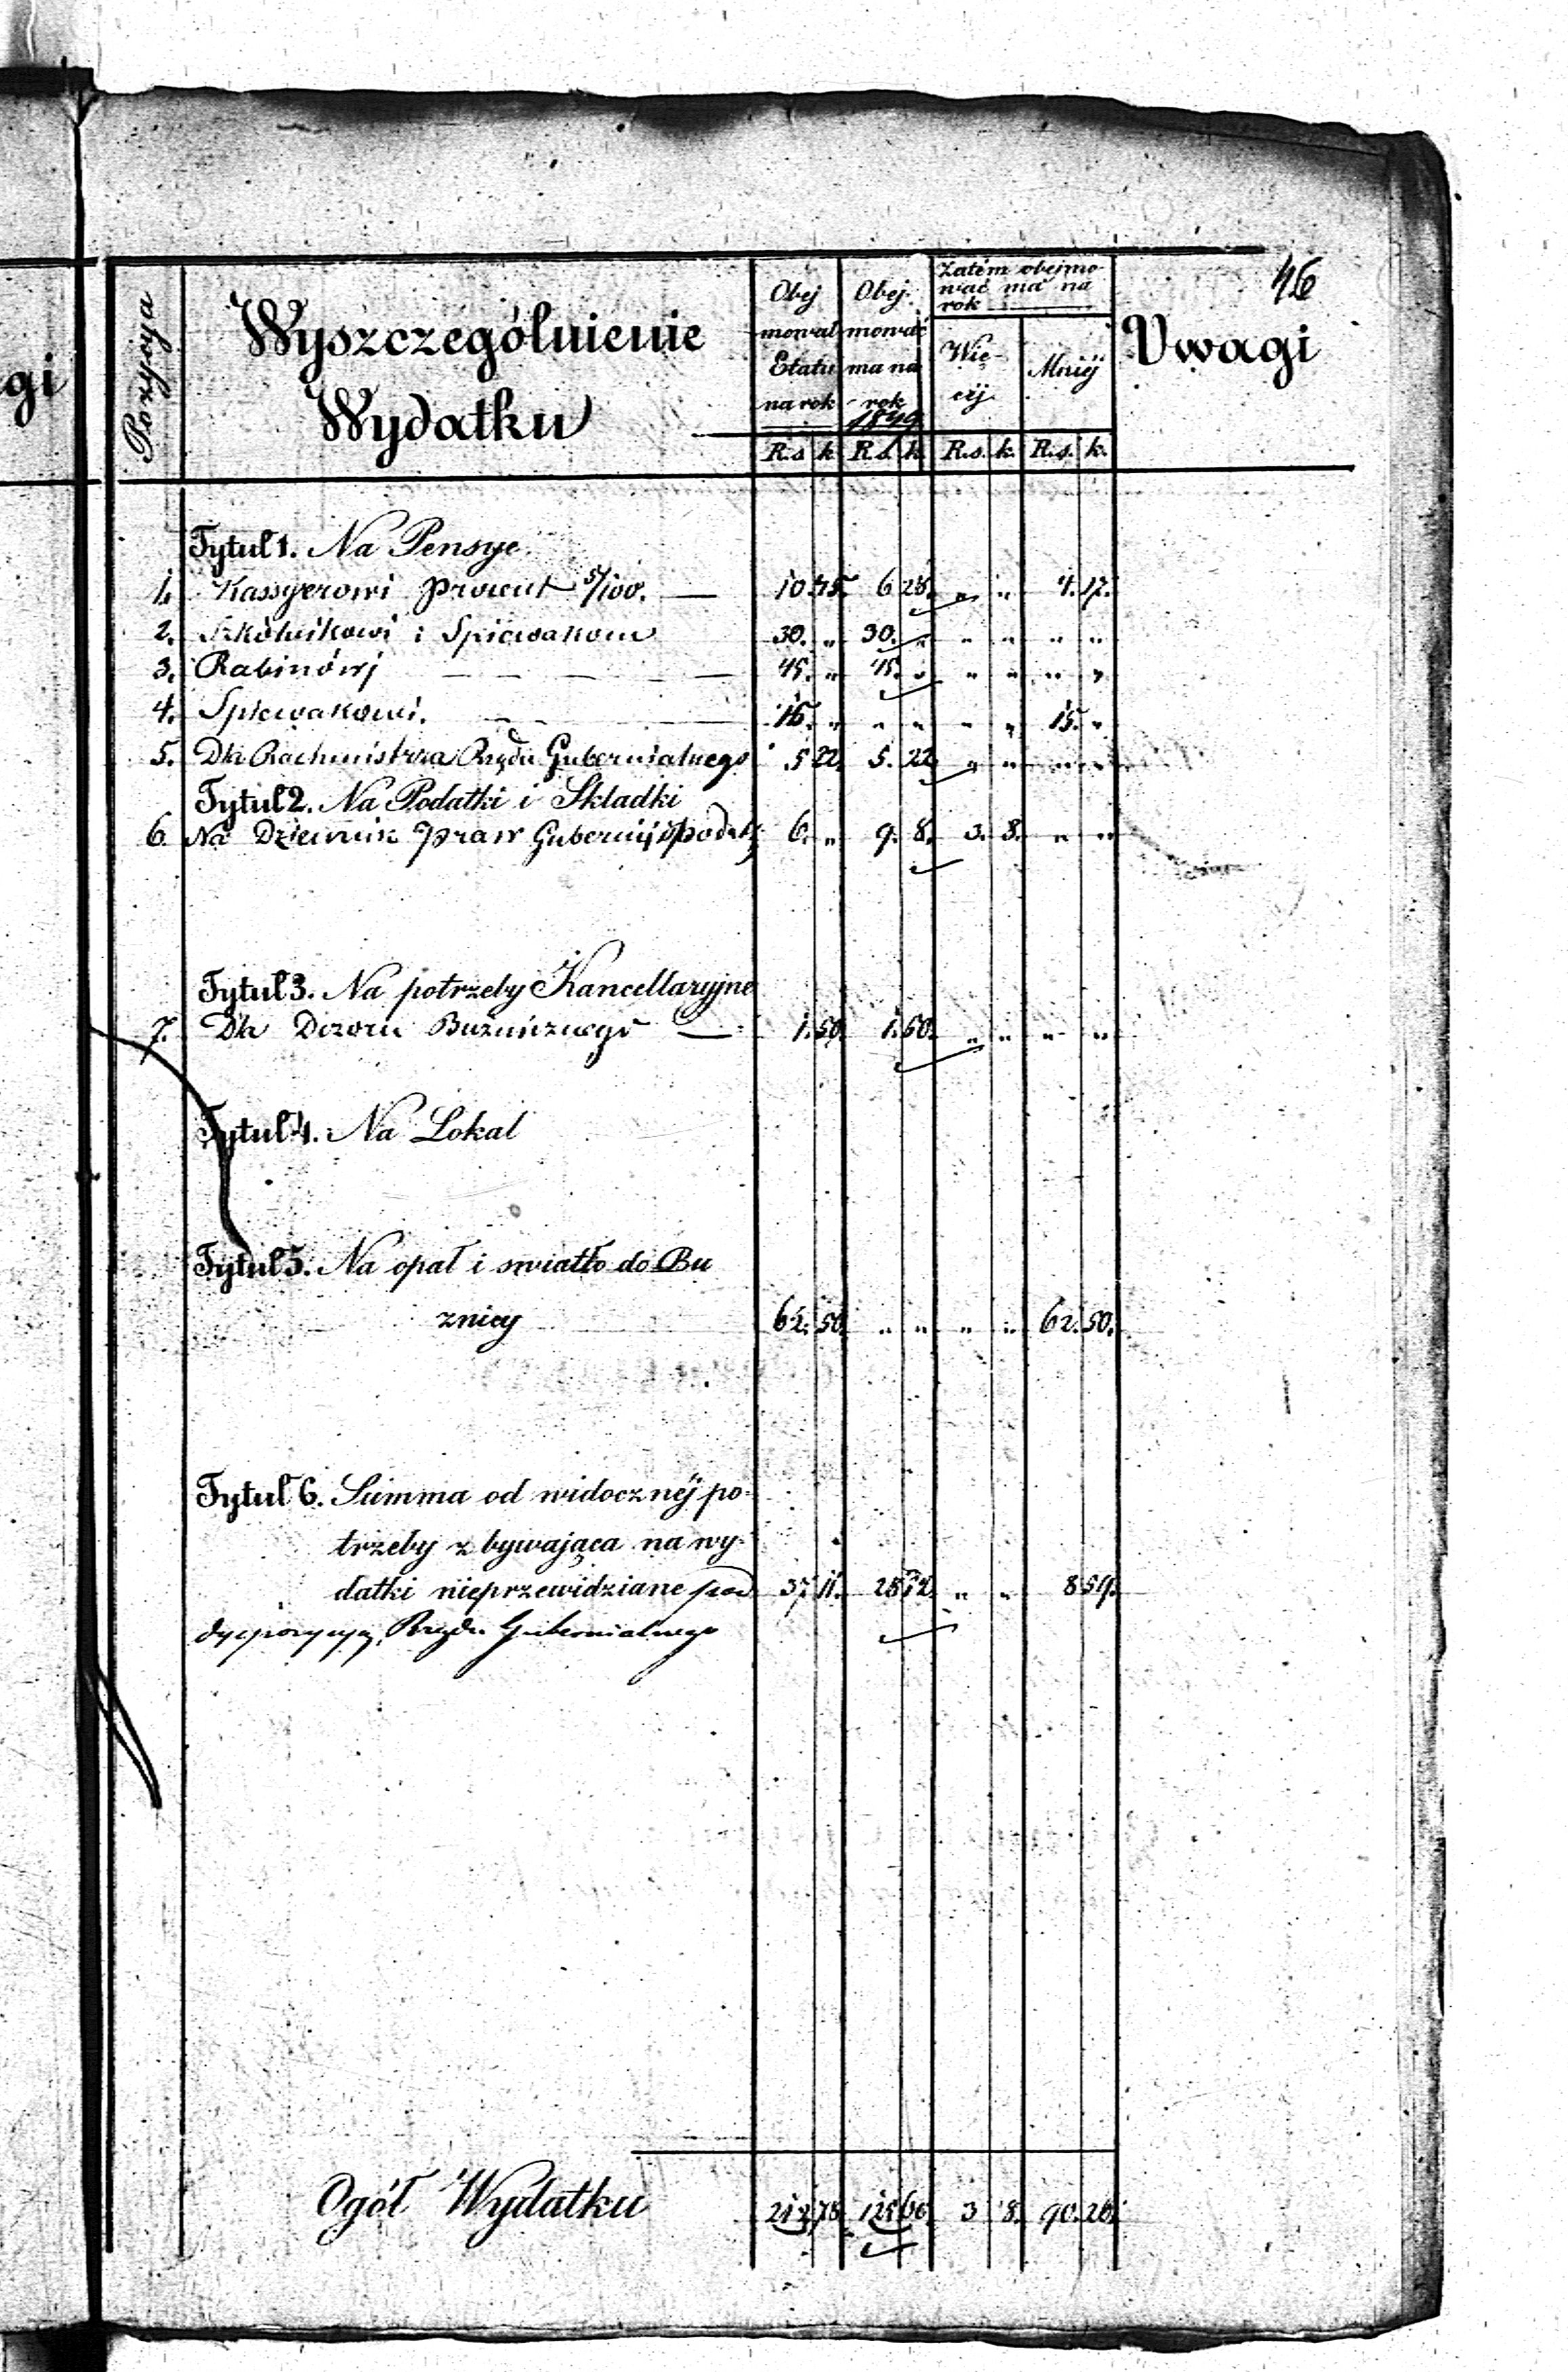 46
gi
Pozycya
Wyszczególnienie
Wydatku
Obej
mował
Etatu
na rok
Obej-
mować
ma na
rok
1849
Zatém obejmo-
wać ma na
rok
Wię-
céj
Mniéj
Uwagi
R.s k R.s. k. R.s. k. R.s. k.
Tytuł 1. Na Pensye
1. Kassyerowi procent 5/100. — 10.45. 6 28. „ „ 4.17.
2. Szkólnikowi i Spiewakom 30. „ 30. „ „ „ „ „
3. Rabinówi — — — 45. „ 45. „ „ „ „ „
4. Spiewakowi. — — 15. „ „ „ „ „ 15. „
5. Dla Rachmistrza Rządu Gubernialnego 5 22. 5. 22 „ „ „ „
Tytuł 2. Na Podatki i Składki
6 Na Dziennik Praw Gubernij i podat: 6. „ 9. 8. 3. 8. „ „
Tytuł 3. Na potrzeby Kancellaryjne
7. Dla Dozoru Bużniznego — 1.50. 1.50. „ „ „ „
Tytuł 4. Na Lokal
Tytuł 5. Na opał i swiatło do Bu
znicy 62.50 „ „ „ „ 62.50.
Tytuł 6. Summa od widocznéj po-
trzeby zbywająca na wy-
datki nieprzewidziane pod 37 11. 28 52. „ „ 8 59.
dyspozycyą Rządu Gubernialnego
Ogół Wydatku 212 78. 125 60. 3 8. 90.26.